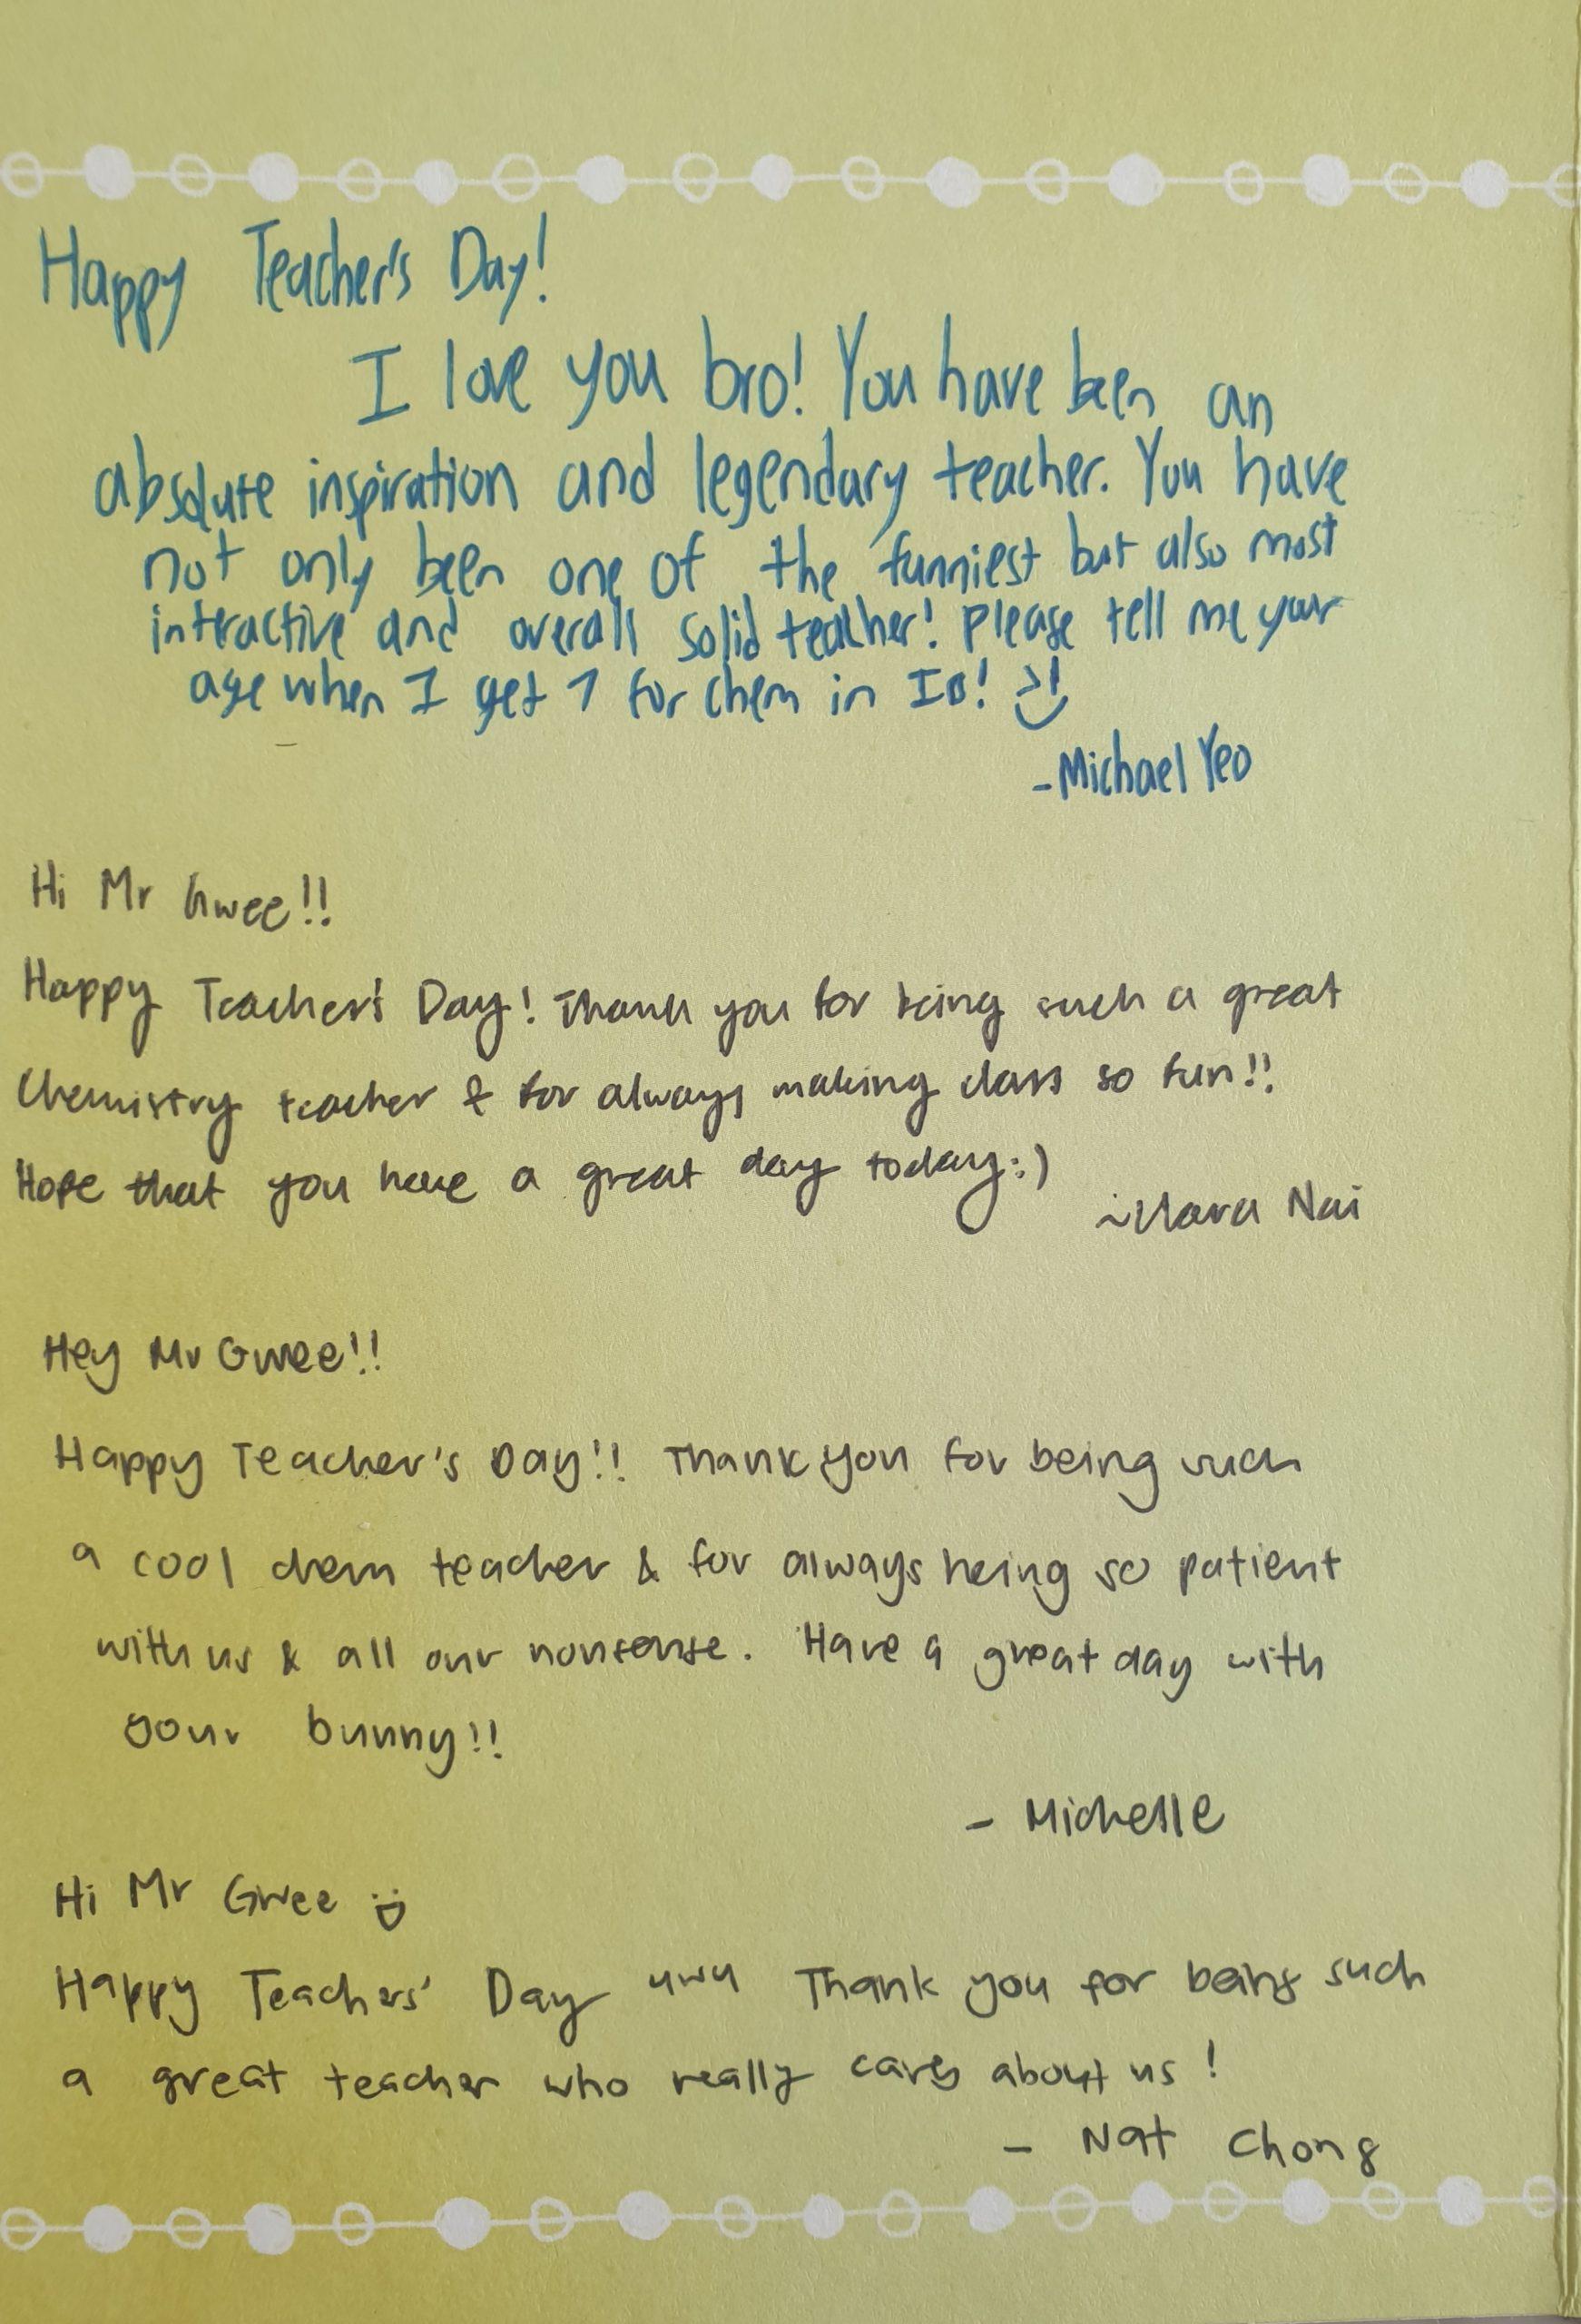 Happy Teacher's Day!
I love you bro! You have been an
absolute inspiration and legendary teacher. You have
not only been one of the funniest but also most
interactive and overall solid teacher! Please tell me your
age when I get 7 for chem in IB!
-Michael Yeo
Hi Mr Gwee!!
Happy Teacher's Day! Thank you for being such a great
Chemistry teacher & for always making class so fun!!
Hope that you have a great day today:)
~ Nai
Hey Mr Gwee!!
Happy Teacher's Day!! Thank you for being such
a cool chem teacher & for always being so patient
with us & all our nonsense. Have a great day with
your bunny!!
- Michelle
Hi Mr Gwee
Happy Teachers' Day uwu Thank you for being such
a great teacher who really cares about us!
- Nat Chong